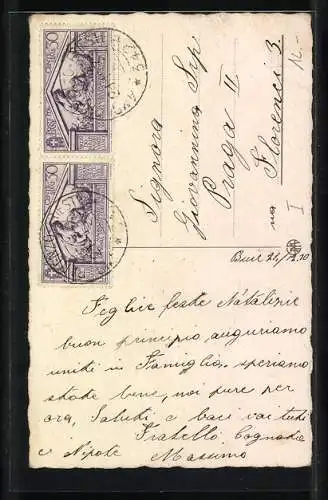 12.-
Signora
Giovannina Srp
Praga II
na Florenci 3
I
24/12.30
Feglice feste Natalizie
buon principio, auguriamo
uniti in Famiglia, speriamo
state bene, noi pure per
ora, Saluti e baci vai tutti
Fratello Cognata
e Nipote Massimo